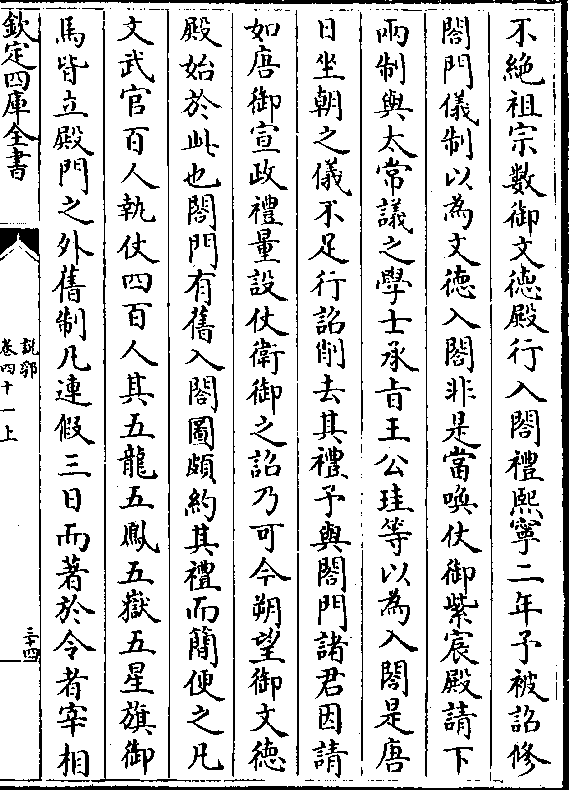 不絶祖宗數御文徳殿行入閤禮熙寧二年予被詔修
閤門儀制以為文徳入閤非是當喚仗御紫宸殿請下
兩制與太常議之學士承㫖王公珪等以為入閤是唐
日坐朝之儀不足行詔削去其禮予與閤門諸君因請
如唐御宣政禮量設仗衛御之詔乃可今朔望御文徳
殿始於此也閤門有舊入閤圖頗約其禮而簡便之凡
文武官百人執仗四百人其五龍五鳳五嶽五星旗御
馬皆立殿門之外舊制凡連假三日而著於令者宰相
欽定四庫全書
說郛
卷四十一上
三十四